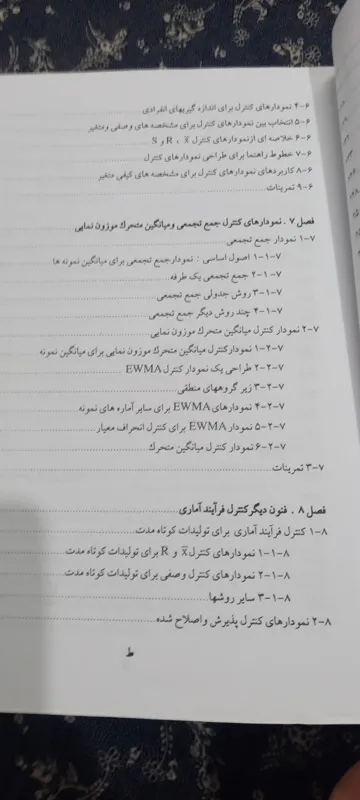 ۴-۶ نمودارهای کنترل برای اندازه گیریهای انفرادی
۵-۶ انتخاب بین نمودارهای کنترل برای مشخصه های وصفی ومتغیر
۶-۶ خلاصه ای ازنمودارهای کنترل X̄ ، R و S
۷-۶ خطوط راهنما برای طراحی نمودارهای کنترل
۸-۶ کاربردهای نمودارهای کنترل برای مشخصه های کیفی متغیر
۹-۶ تمرینات
فصل ۷ . نمودارهای کنترل جمع تجمعی ومیانگین متحرك موزون نمایی
۱-۷ نمودار جمع تجمعی
۱-۱-۷ اصول اساسی : نمودارجمع تجمعی برای میانگین نمونه ها
۲-۱-۷ جمع تجمعی یک طرفه
۳-۱-۷ روش جدولی جمع تجمعی
۴-۱-۷ چند روش دیگر جمع تجمعی
۲-۷ نمودار کنترل میانگین متحرك موزون نمایی
۱-۲-۷ نمودارکنترل میانگین متحرك موزون نمایی برای میانگین نمونه
۲-۲-۷ طراحی یک نمودار کنترل EWMA
۳-۲-۷ زیر گروههای منطقی
۴-۲-۷ نمودارهای EWMA برای سایر آماره های نمونه
۵-۲-۷ نمودار EWMA برای کنترل انحراف معیار
۶-۲-۷ نمودار کنترل میانگین متحرك
۳-۷ تمرینات
فصل ۸ . فنون دیگرکنترل فرآیند آماری
۱-۸ کنترل فرآیند آماری برای تولیدات کوتاه مدت
۱-۱-۸ نمودارهای کنترل X̄ و R برای تولیدات کوتاه مدت
۲-۱-۸ نمودارهای کنترل وصفی برای تولیدات کوتاه مدت
۳-۱-۸ سایر روشها
۲-۸ نمودارهای کنترل پذیرش واصلاح شده
ط